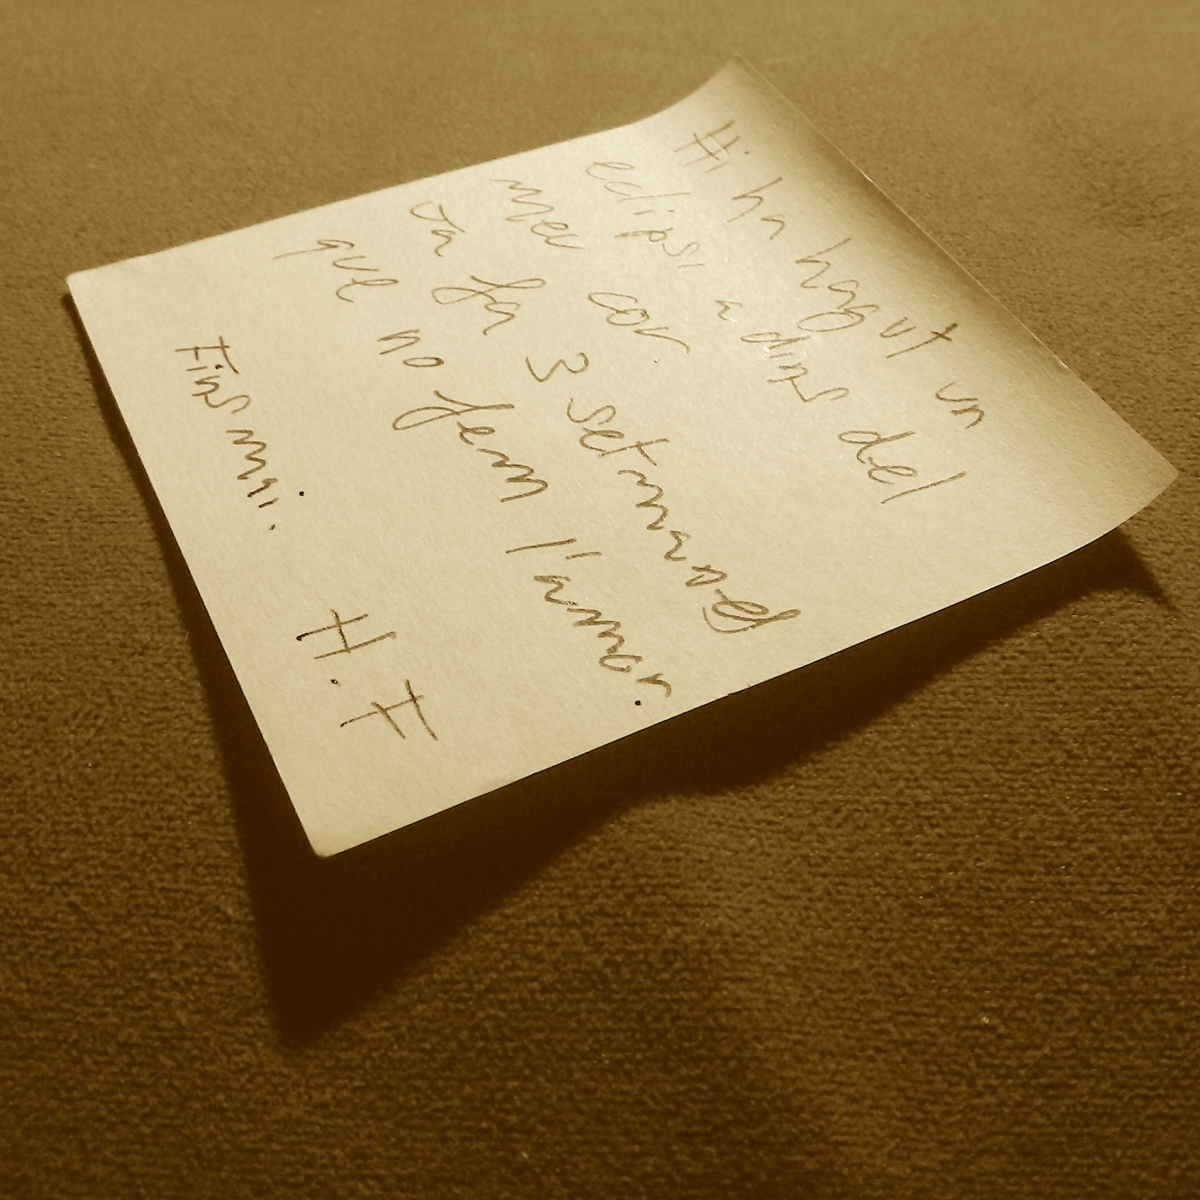 Hi ha hagut un
eclipsi a dins del
meu cor
Ja fa 3 setmanes
que no fem l'amor.
Fins mai.
H. F